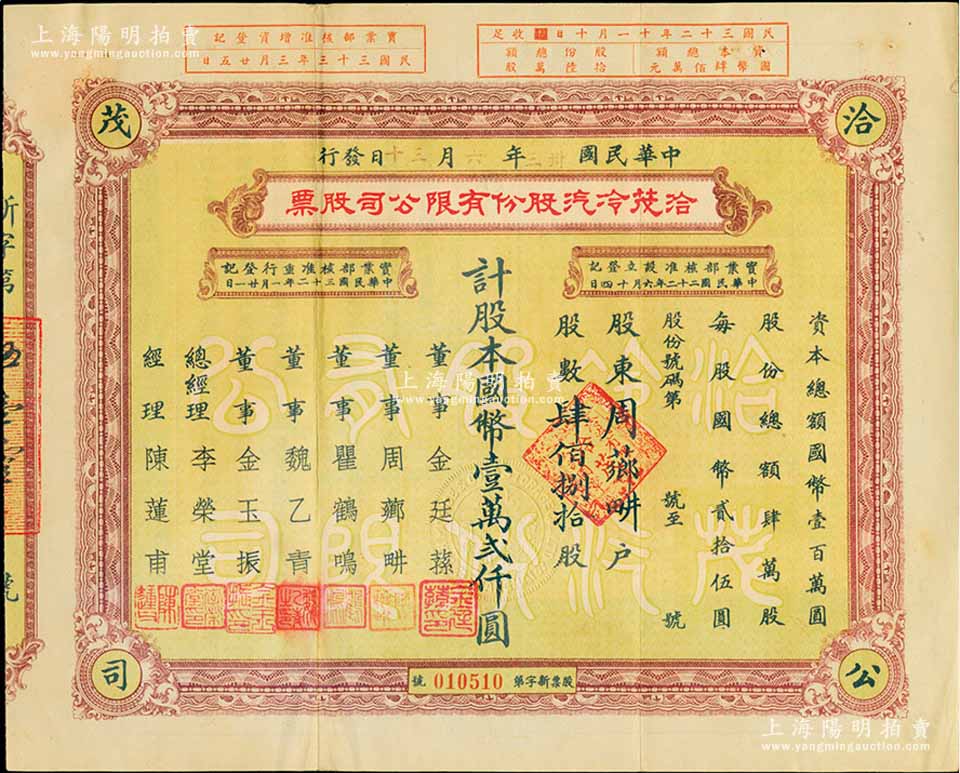 上海陽明拍賣
www.yangmingauction.com
民國三十二年十一月十日收足
資本總額
國幣肆佰萬元
股份總額
拾陸萬股
實業部核准增資登記
民國三十三年三月廿五日
洽
茂
公
司
中華民國卅三年六月三十日發行
洽茂冷汽股份有限公司股票
實業部核准設立登記
中華民國二十二年六月十四日
實業部核准重行登記
中華民國三十二年一月廿一日
資本總額國幣壹百萬圓
股份總額肆萬股
每股國幣貳拾伍圓
股份號碼第 號至 號
股東周薌畊户
股數肆佰捌拾股
計股本國幣壹萬弍仟圓
董事金廷蓀
董事周薌畊
董事瞿鶴鳴
董事魏乙青
董事金玉振
總經理李榮堂
經理陳蓮甫
洽茂冷汽股份有限公司
股票新字第 010510 號
新字第
號
上海陽明拍賣
www.yangmingauction.com
上海陽明拍賣
www.yangmingauction.com